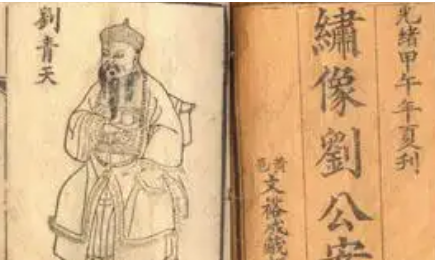 光緒甲午年夏刊
繡像劉公案
文裕成藏
劉青天